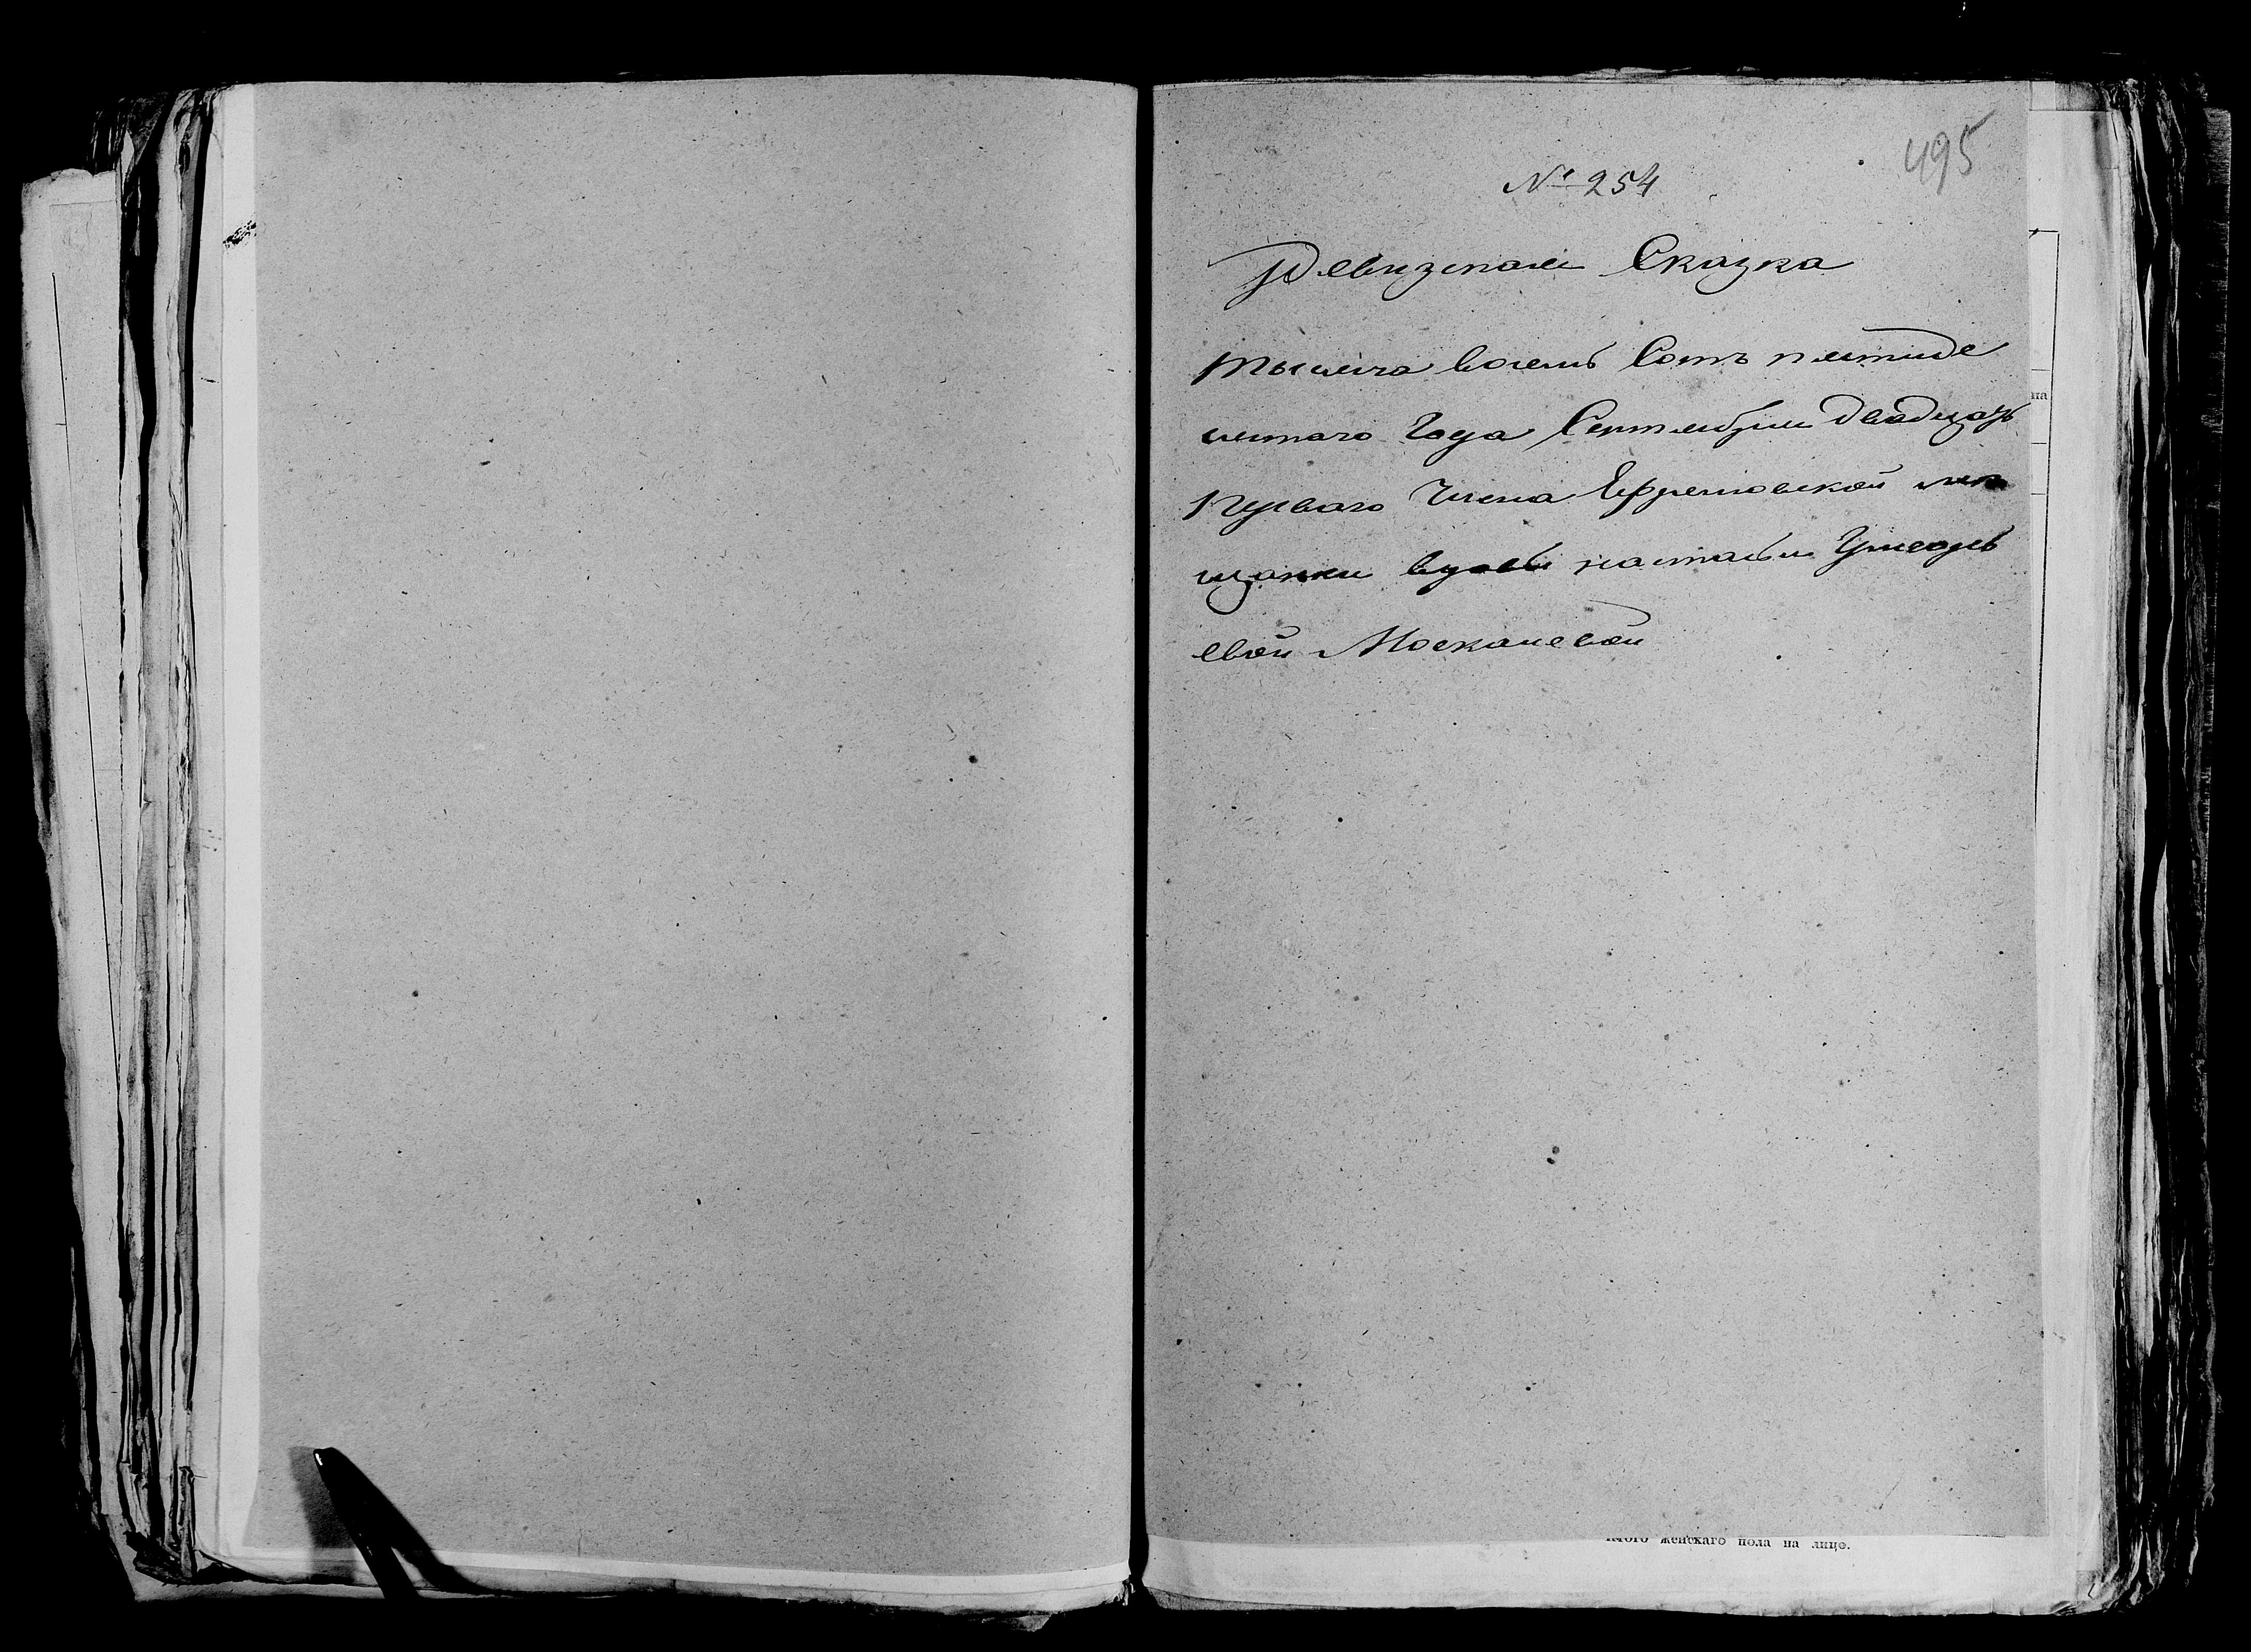 495
№ 254
Ревизская Сказка
тысяча восемь Сотъ пятиде
сятаго Года Сентября двадцать
перваго Числа Ефремовской мѣ
щанки вдовы настасьи
евой Москалевой
на
итого женскаго пола на лицо.